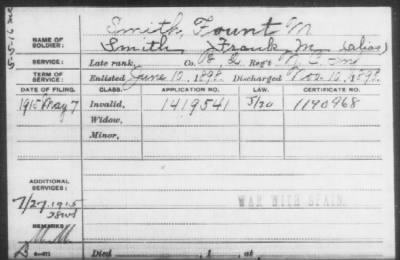 Smith, Fount M
NAME OF SOLDIER: Smith, Frank, M. (alias)
SERVICE: Late rank, Co. Reg't N. C. Inf
TERM OF SERVICE: Enlisted June 12, 1898. Discharged Nov. 12, 1898.
DATE OF FILING. CLASS. APPLICATION NO. LAW. CERTIFICATE NO.
1915 May 7 Invalid, 1419541 5/20 1190968
Widow,
Minor,
ADDITIONAL SERVICES:
7/27, 1915
WAR WITH SPAIN.
REMARKS
Died , 1 , at